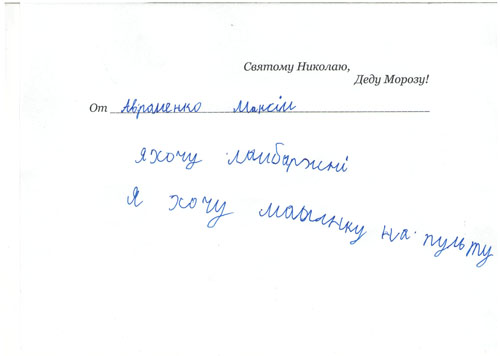 Святому Николаю,
Деду Морозу!
От Авраменко Максім
яхочу ламбаржні
Я хочу машынку на пульту